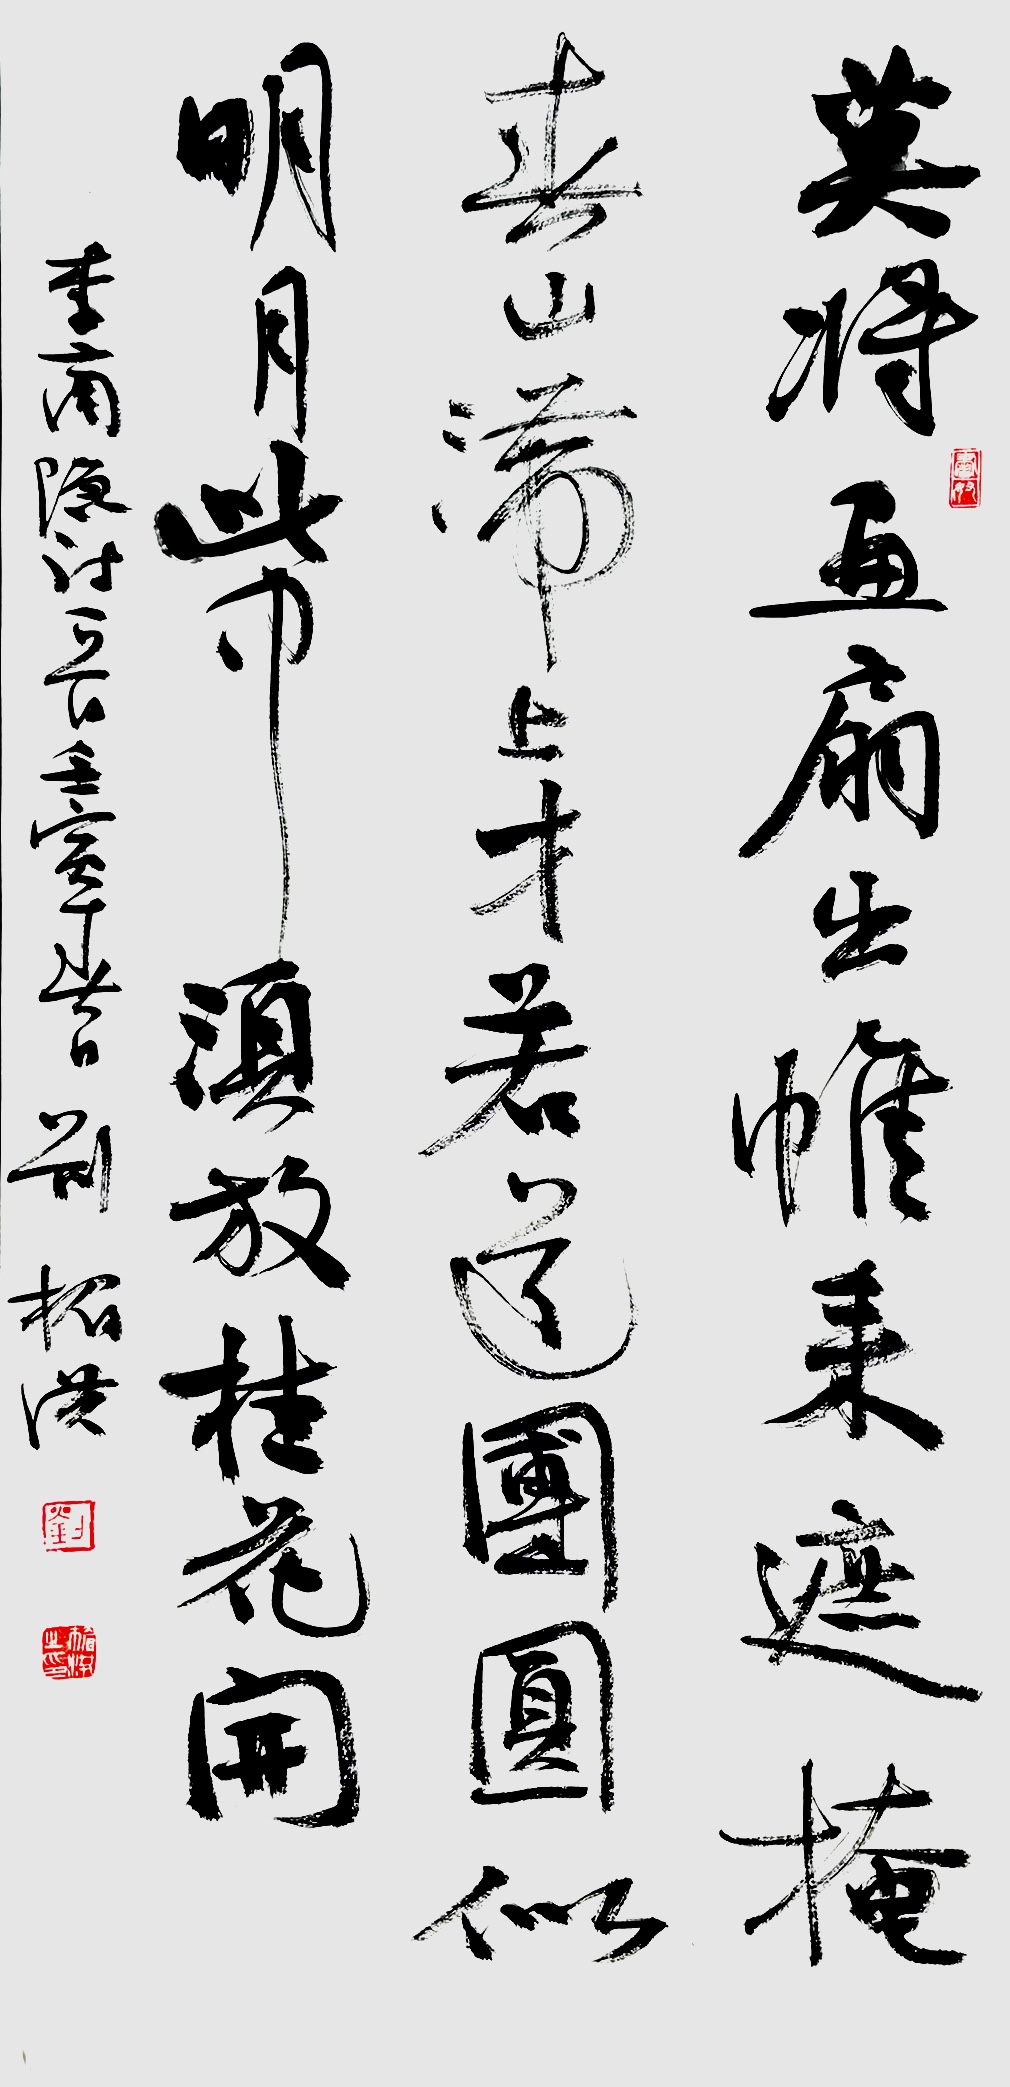 莫将画扇出帷来遮掩
春山滞上才若道團圓似
明月此中須放桂花開
李商隐诗 壬寅年春日 刘 洪
劉